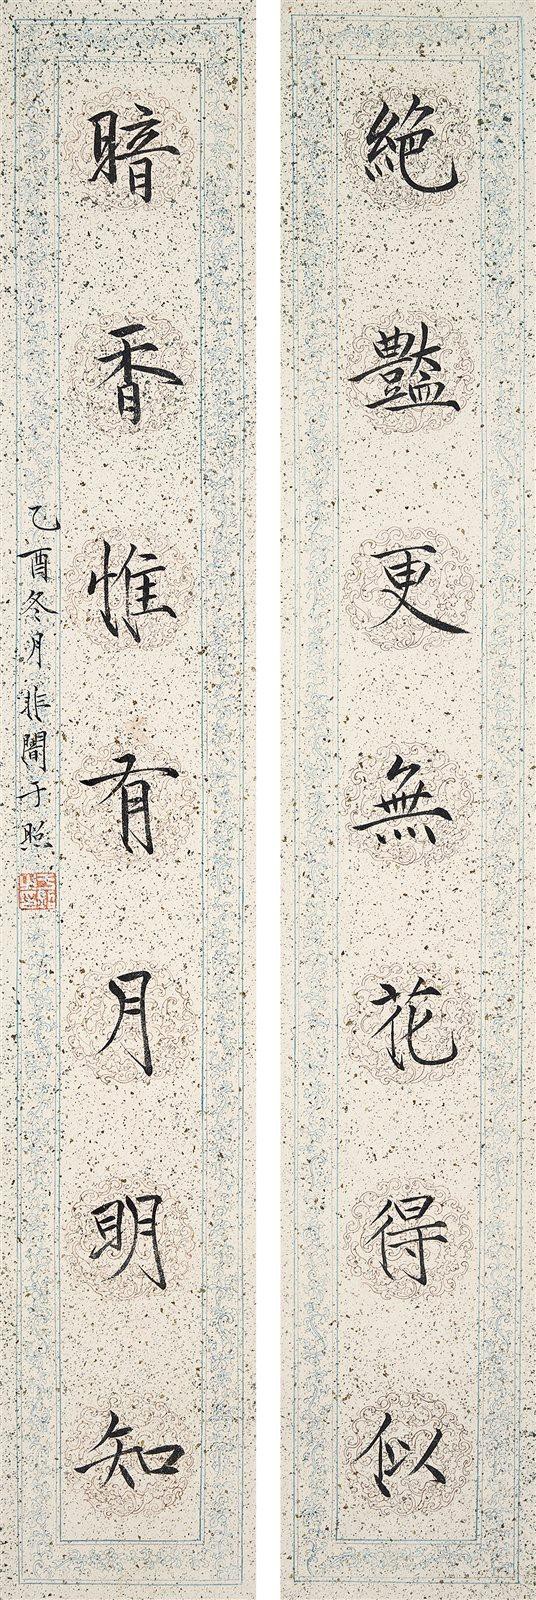 絕豔更無花得似
暗香惟有月明知
乙酉冬月非闇于照